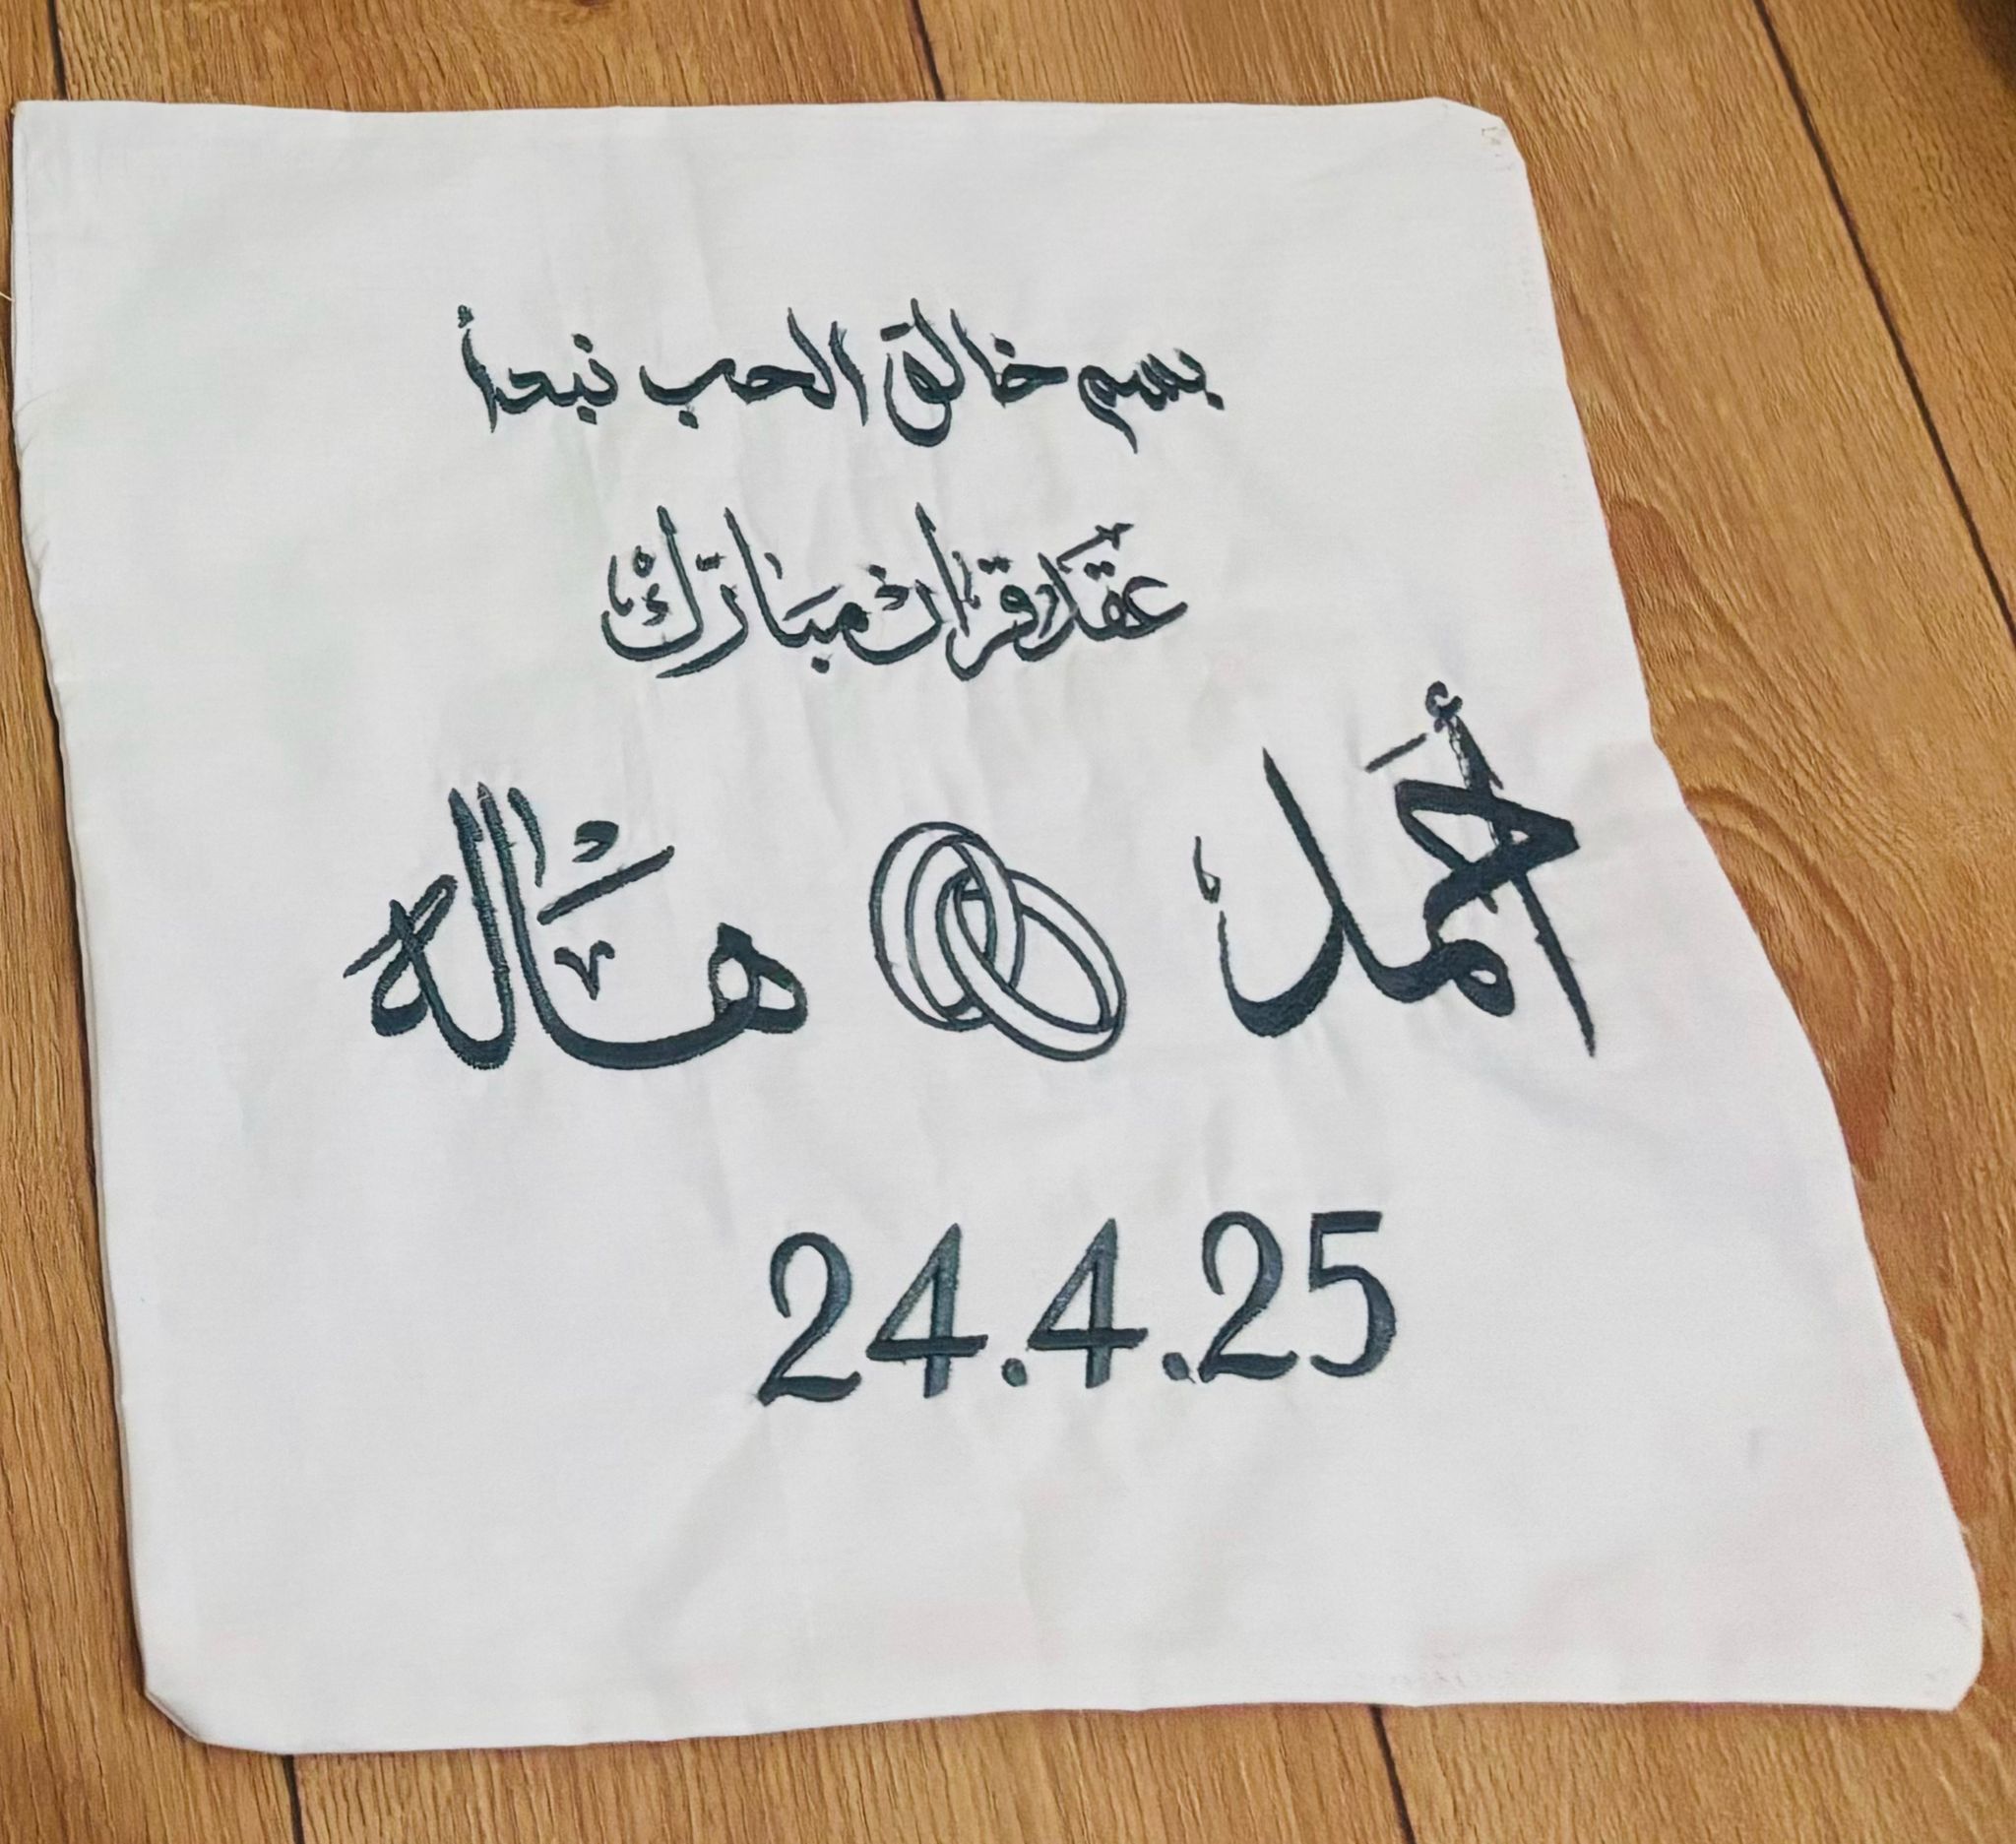 بسم خالق الحب نبدأ
عقد قران مبارك
أحمد هالة
24.4.25